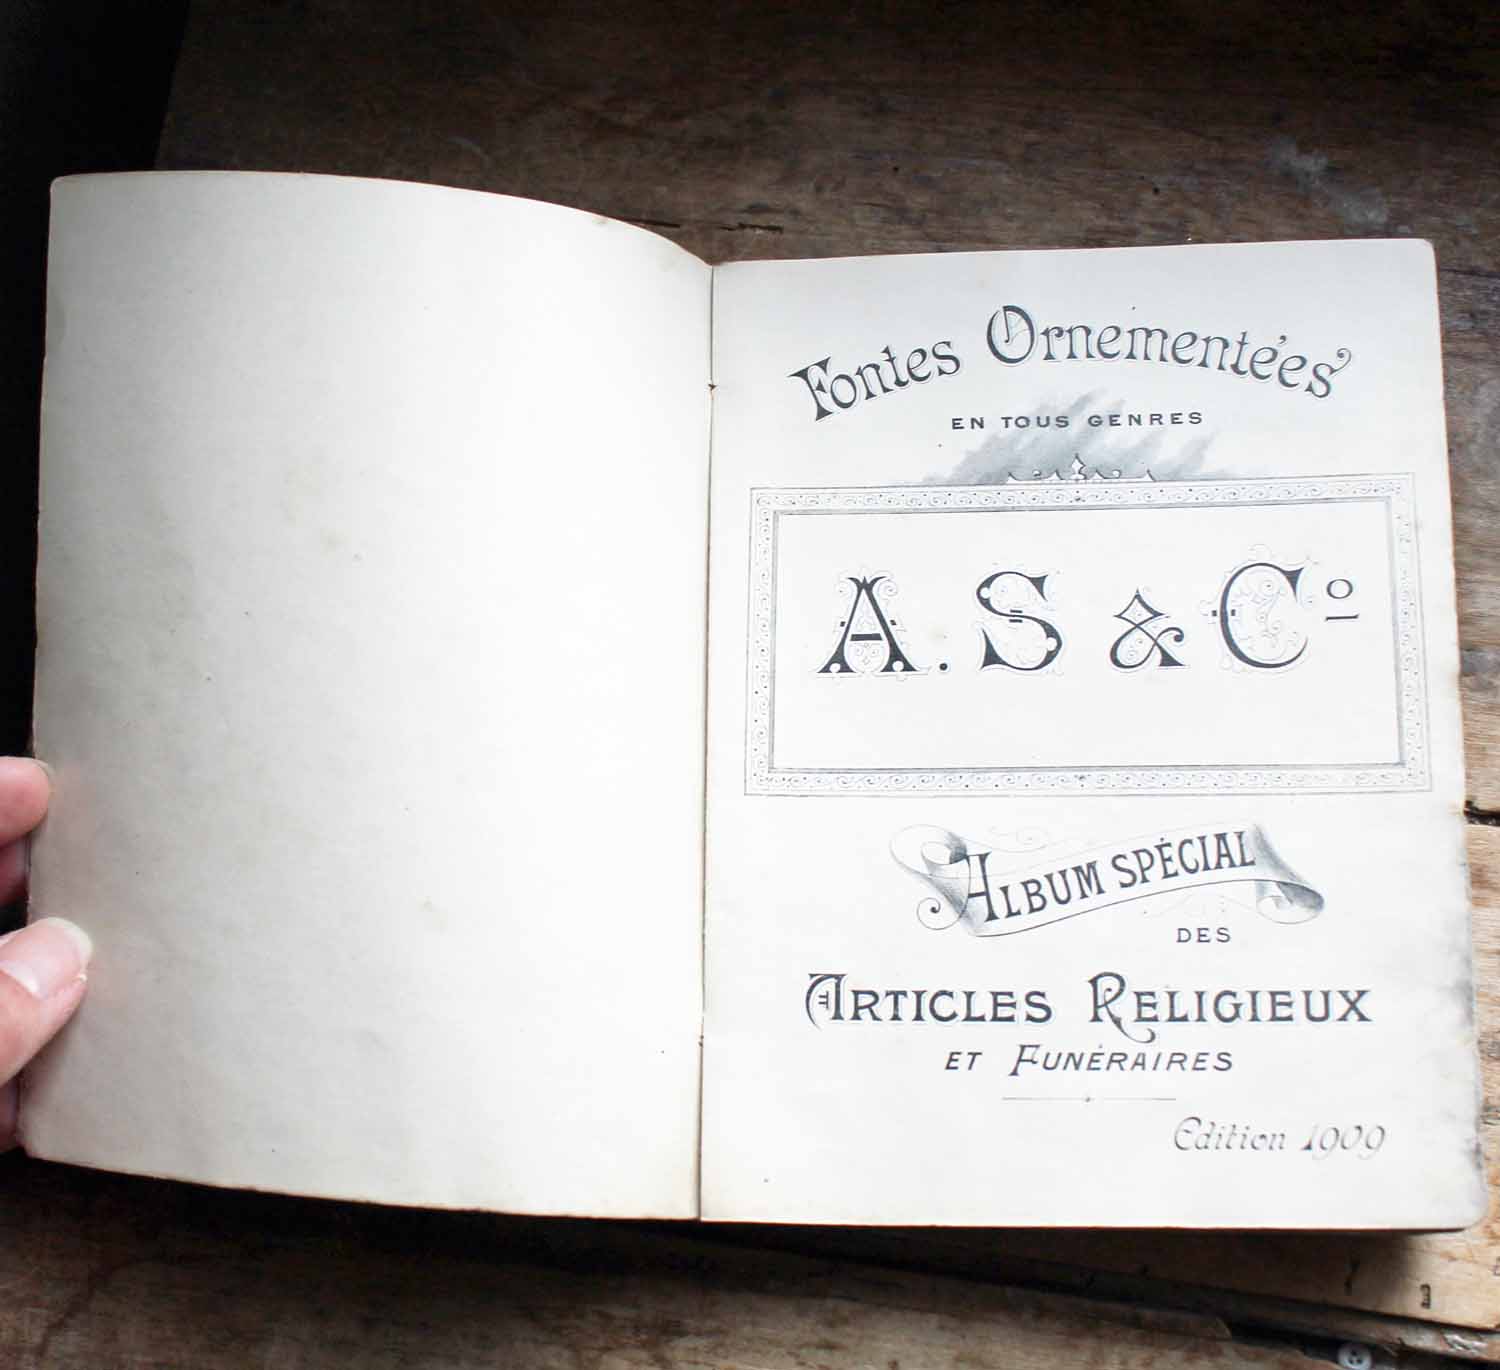 Fontes Ornementées
EN TOUS GENRES
A. S & Cº
ALBUM SPÉCIAL
DES
ARTICLES RELIGIEUX
ET FUNÉRAIRES
Edition 1909